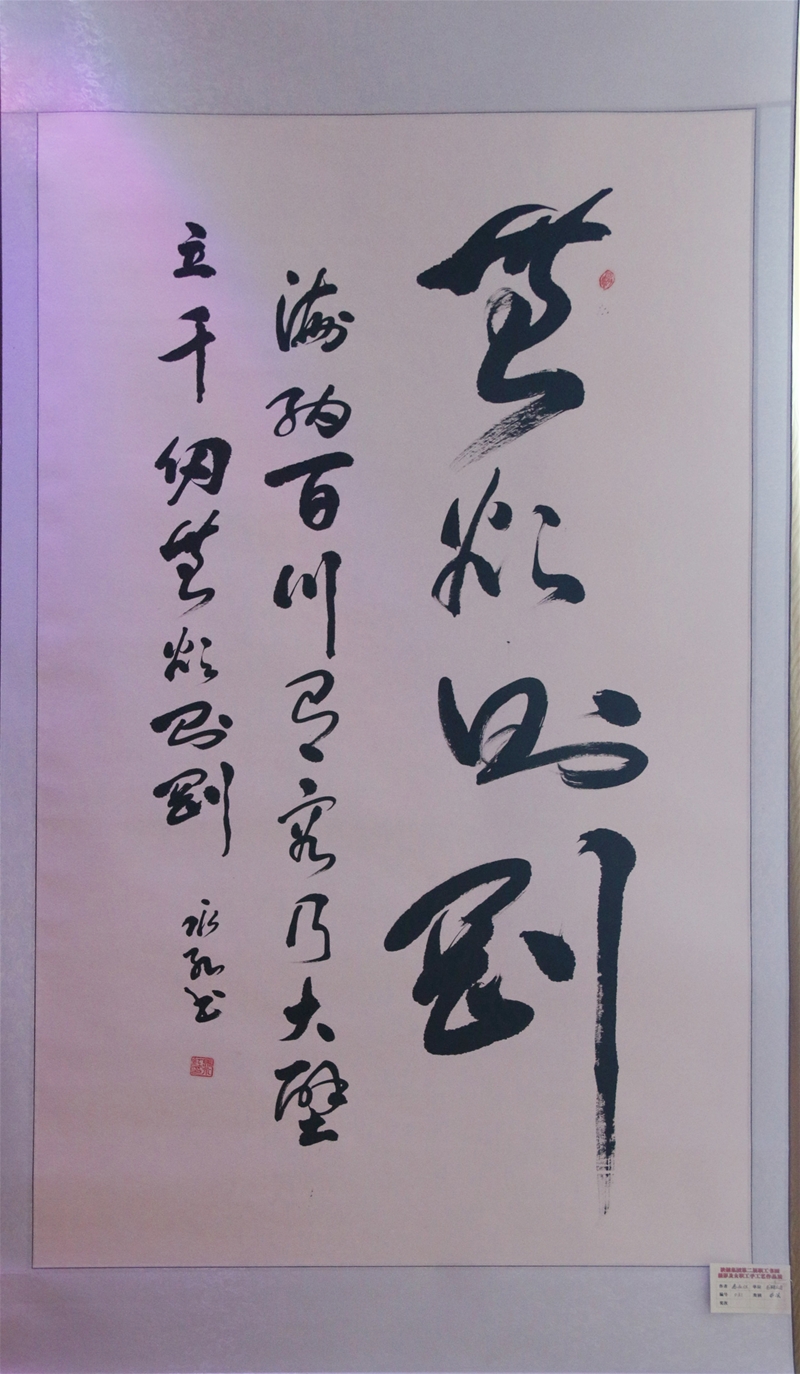 無欲則剛
海納百川有容乃大壁
立千仞無欲則剛
永孔書